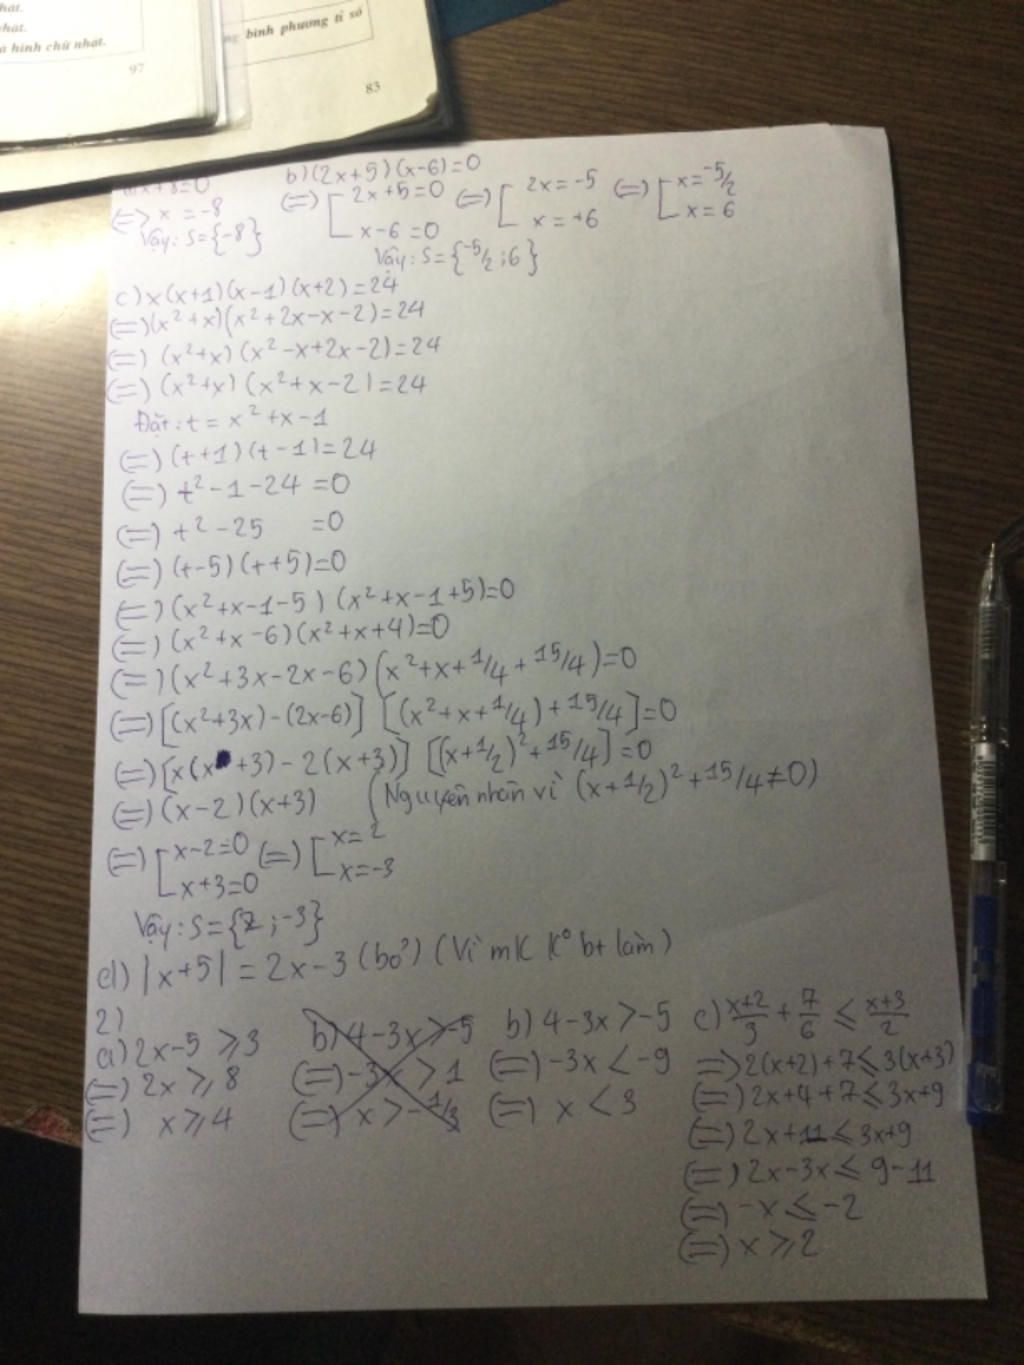 hật.
nhật.
à hình chữ nhật.
97
bình phương tỉ số
83
a) x+8=0
(=) x = -8
Vậy: S={-8}
b) (2x+5)(x-6)=0
(=) [ 2x+5=0 (=) [ 2x=-5 (=) [ x=-5/2
x-6=0 x=+6 x=6
Vậy: S={-5/2;6}
c) x(x+1)(x-1)(x+2)=24
(=) (x²+x)(x²+2x-x-2)=24
(=) (x²+x)(x²-x+2x-2)=24
(=) (x²+x)(x²+x-2)=24
Đặt: t = x²+x-1
(=) (t+1)(t-1)=24
(=) t²-1-24=0
(=) t²-25 =0
(=) (t-5)(t+5)=0
(=) (x²+x-1-5)(x²+x-1+5)=0
(=) (x²+x-6)(x²+x+4)=0
(=) (x²+3x-2x-6)(x²+x+1/4+15/4)=0
(=) [(x²+3x)-(2x-6)] [(x²+x+1/4)+15/4]=0
(=) [x(x+3)-2(x+3)] [(x+1/2)²+15/4]=0
(=) (x-2)(x+3) (Nguyên nhân vì (x+1/2)²+15/4≠0)
(=) [ x-2=0 (=) [ x=2
x+3=0 x=-3
Vậy: S={2;-3}
d) |x+5| = 2x-3 (bỏ) (Vì mk k° bt làm)
2)
a) 2x-5 ⩾ 3
(=) 2x ⩾ 8
(=) x ⩾ 4
b) 4-3x > -5
(=) -3x > 1
(=) x > -1/3
b) 4-3x > -5
(=) -3x < -9
(=) x < 3
c) x+2/3 + 7/6 ⩽ x+3/2
=> 2(x+2)+7 ⩽ 3(x+3)
(=) 2x+4+7 ⩽ 3x+9
(=) 2x+11 ⩽ 3x+9
(=) 2x-3x ⩽ 9-11
(=) -x ⩽ -2
(=) x ⩾ 2